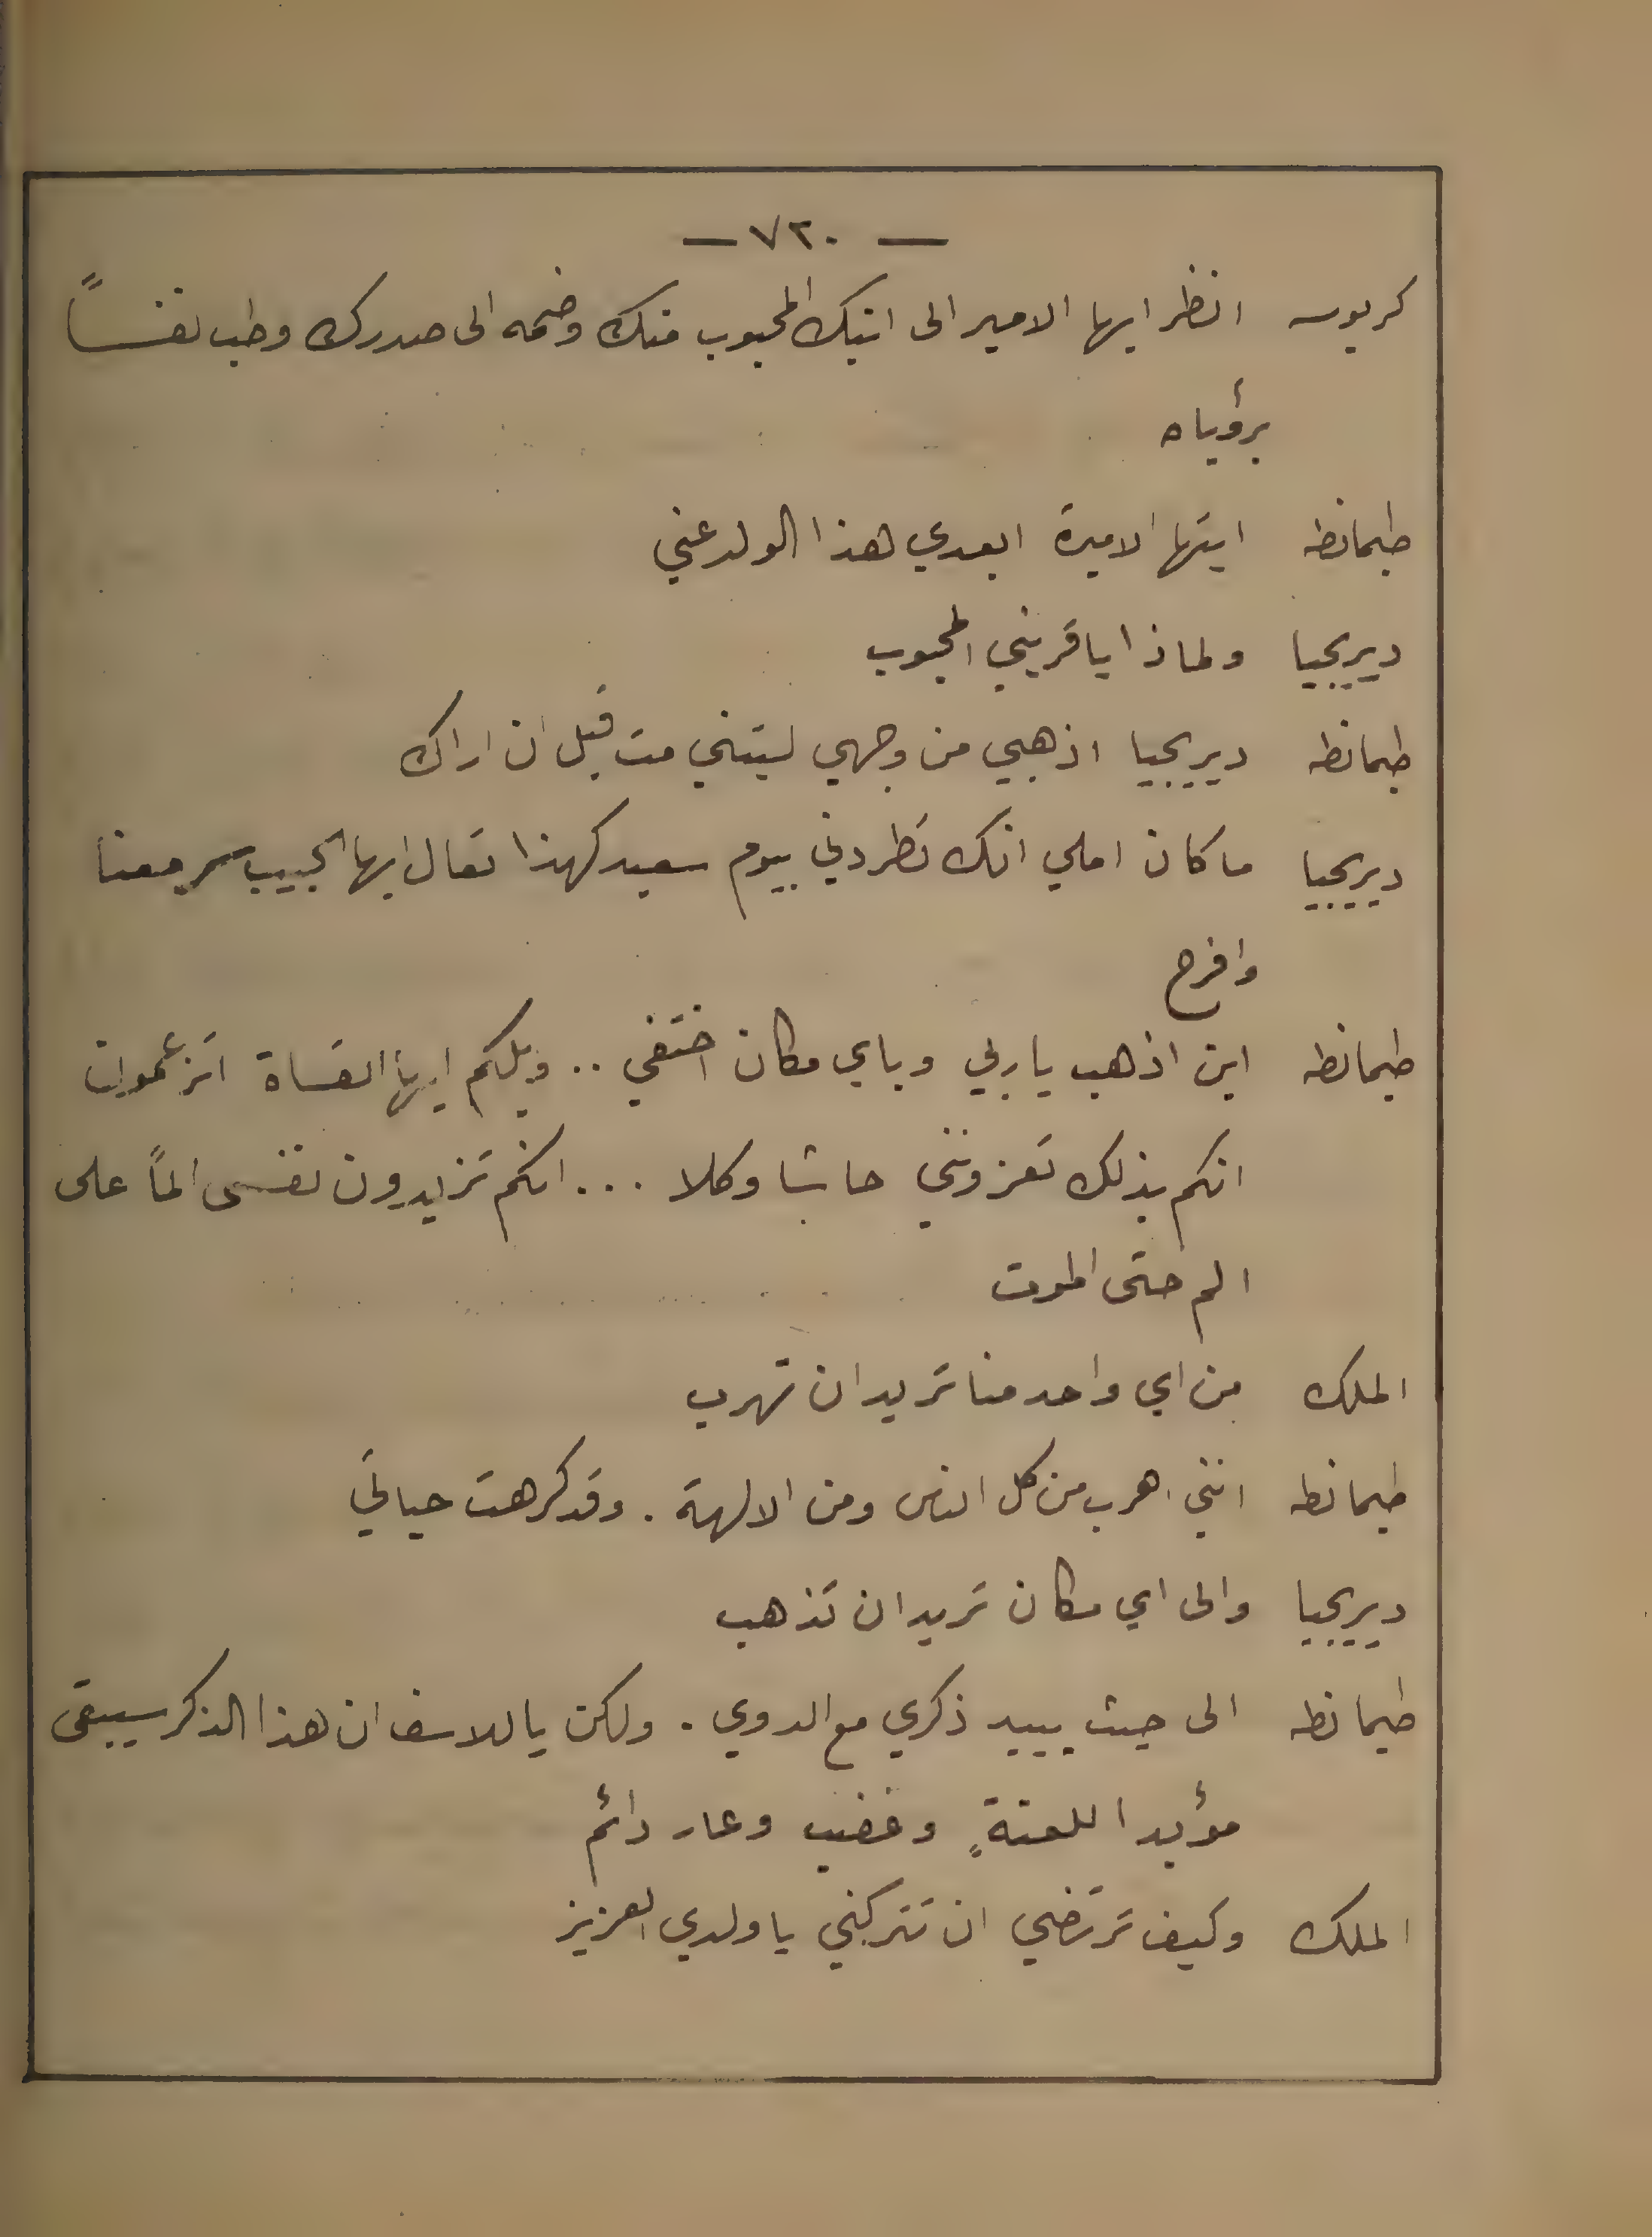 — ٧٢٠ —
كربوس انظر ايها الامير الى ابنك المحبوب منك وضمه الى صدرك وطب نفساً
برؤياه
طيمانطه ايتها الاميرة ابعدي هذا الولد عني
ديريجيا ولماذا يا قريني المحبوب
طيمانطه ديريجيا اذهبي من وجهي ليتني مت قبل ان اراك
ديريجيا ما كان املي انك تطردني بيوم سعيد كهذا تعال ايها الحبيب سر معنا
وافرح
طيمانطه اين اذهب يا ربي وباي مكان اختفي .. ويلكم ايها القساة اتزعمون
انكم بذلك تعزونني حاشا وكلا ... انكم تزيدون نفسى الماً على
الم حتى الموت
الملك من اي واحد منا تريد ان تهرب
طيمانطه انني اهرب من كل الناس ومن الالهة . وقد كرهت حياتي
ديريجيا والى اي مكان تريد ان تذهب
طيمانطه الى حيث يبيد ذكري مع الدوي . ولكن يا للاسف ان هذا الذكر سيبقى
مؤبدا للعنةٍ وغضب وعار دائم
الملك وكيف ترتضي ان تتركني يا ولدي العزيز